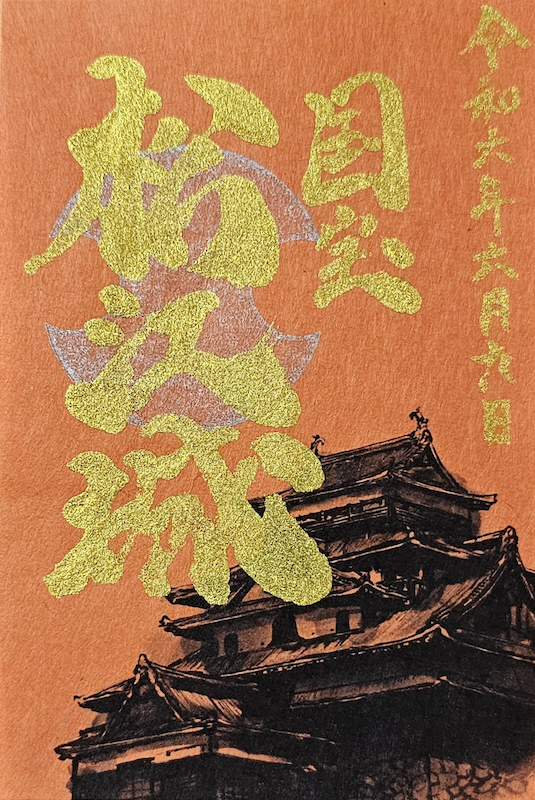 令和六年六月日
国宝
松江城